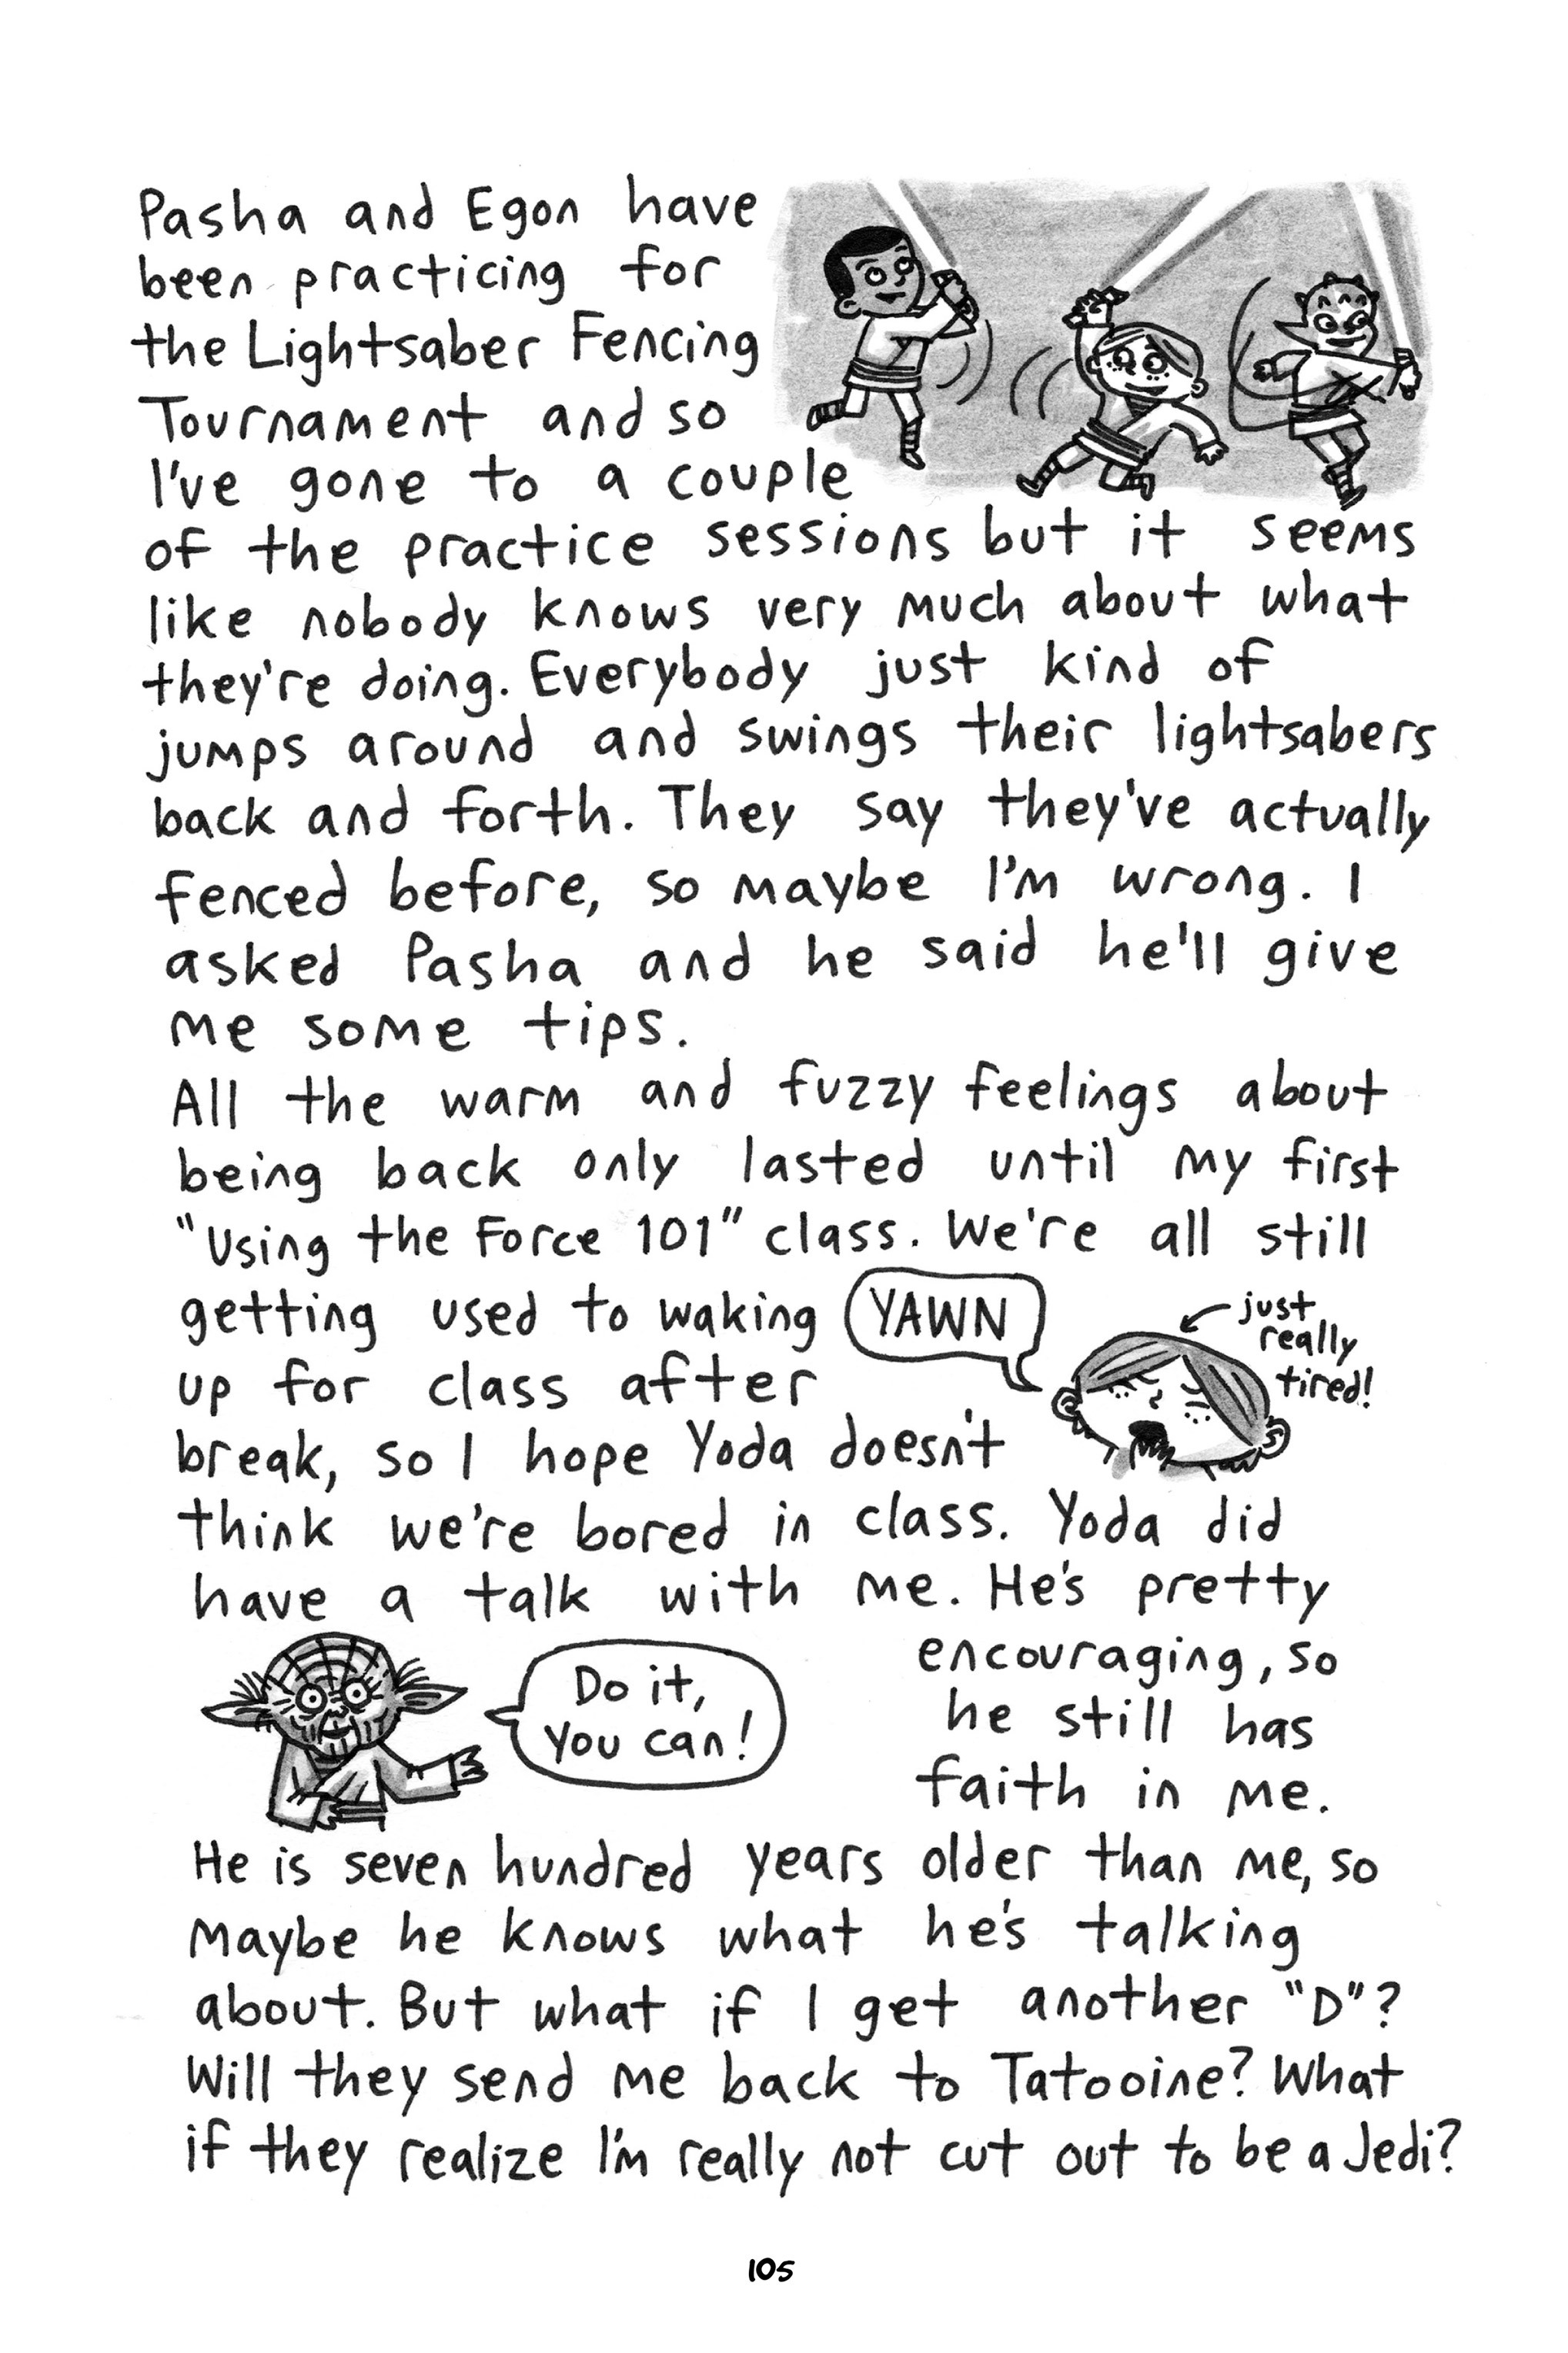 Pasha and Egon have
been practicing for
the Lightsaber Fencing
Tournament and so
I've gone to a couple
of the practice sessions but it seems
like nobody knows very much about what
they're doing. Everybody just kind of
jumps around and swings their lightsabers
back and forth. They say they've actually
fenced before, so maybe I'm wrong. I
asked Pasha and he said he'll give
me some tips.
All the warm and fuzzy feelings about
being back only lasted until my first
"Using the Force 101" class. We're all still
getting used to waking
up for class after
break, so I hope Yoda doesn't
YAWN
just
really
tired!
think we're bored in class. Yoda did
have a talk with me. He's pretty
Do it,
you can!
encouraging, so
he still has
faith in me.
He is seven hundred years older than me, so
maybe he knows what he's talking
about. But what if I get another "D"?
Will they send me back to Tatooine? What
if they realize I'm really not cut out to be a Jedi?
105